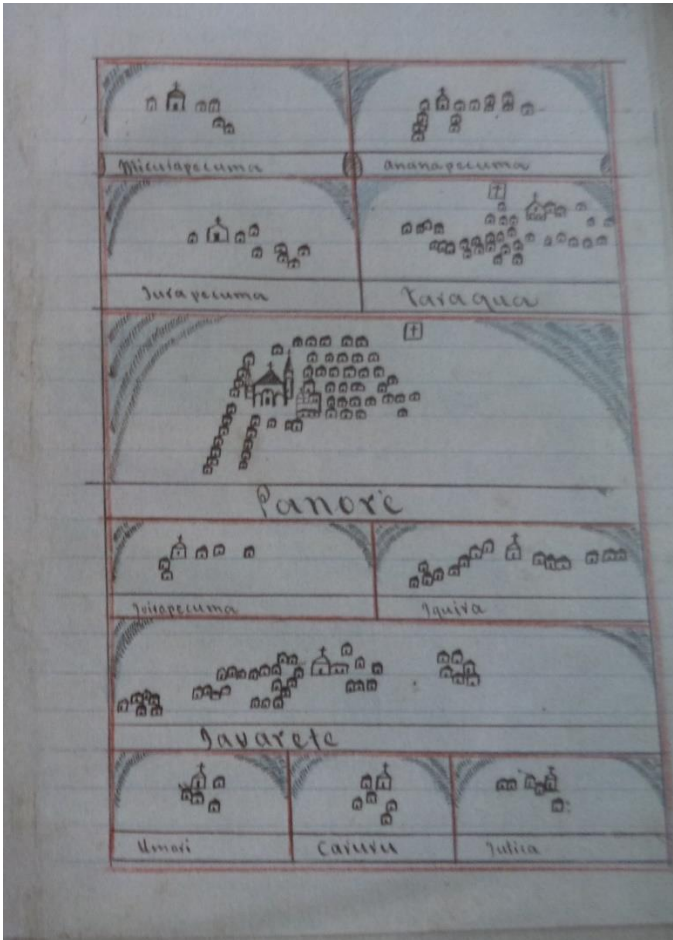 Micurapecuma
ananapecuma
Jurapecuma
Taraqua
Panoré
Iquira
Javarete
Umari
Caruru
Julica